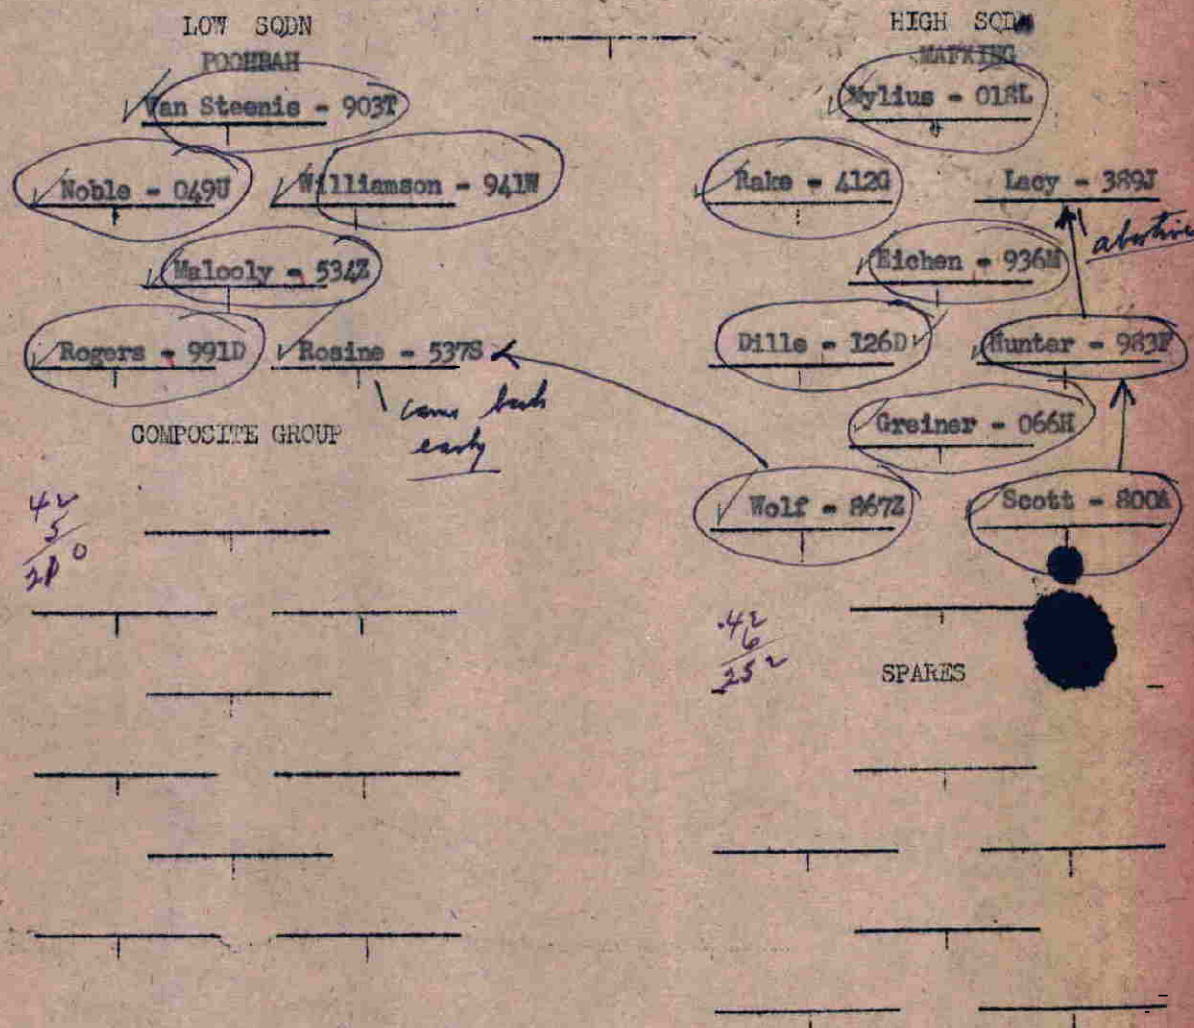 LOW SQDN
POOHBAH
Van Steenis - 903T
Noble - 049U
Williamson - 941W
Malooly - 534Z
Rogers - 991D
Rosine - 537S
came back
early
COMPOSITE GROUP
42
5
210
HIGH SQDN
MAFKING
Mylius - 018L
Rake - 412G
Lacy - 389J
abortive
Eichen - 936M
Dille - 126D
Hunter - 983F
Greiner - 066H
Wolf - 867Z
Scott - 800A
.42
6
252
SPARES